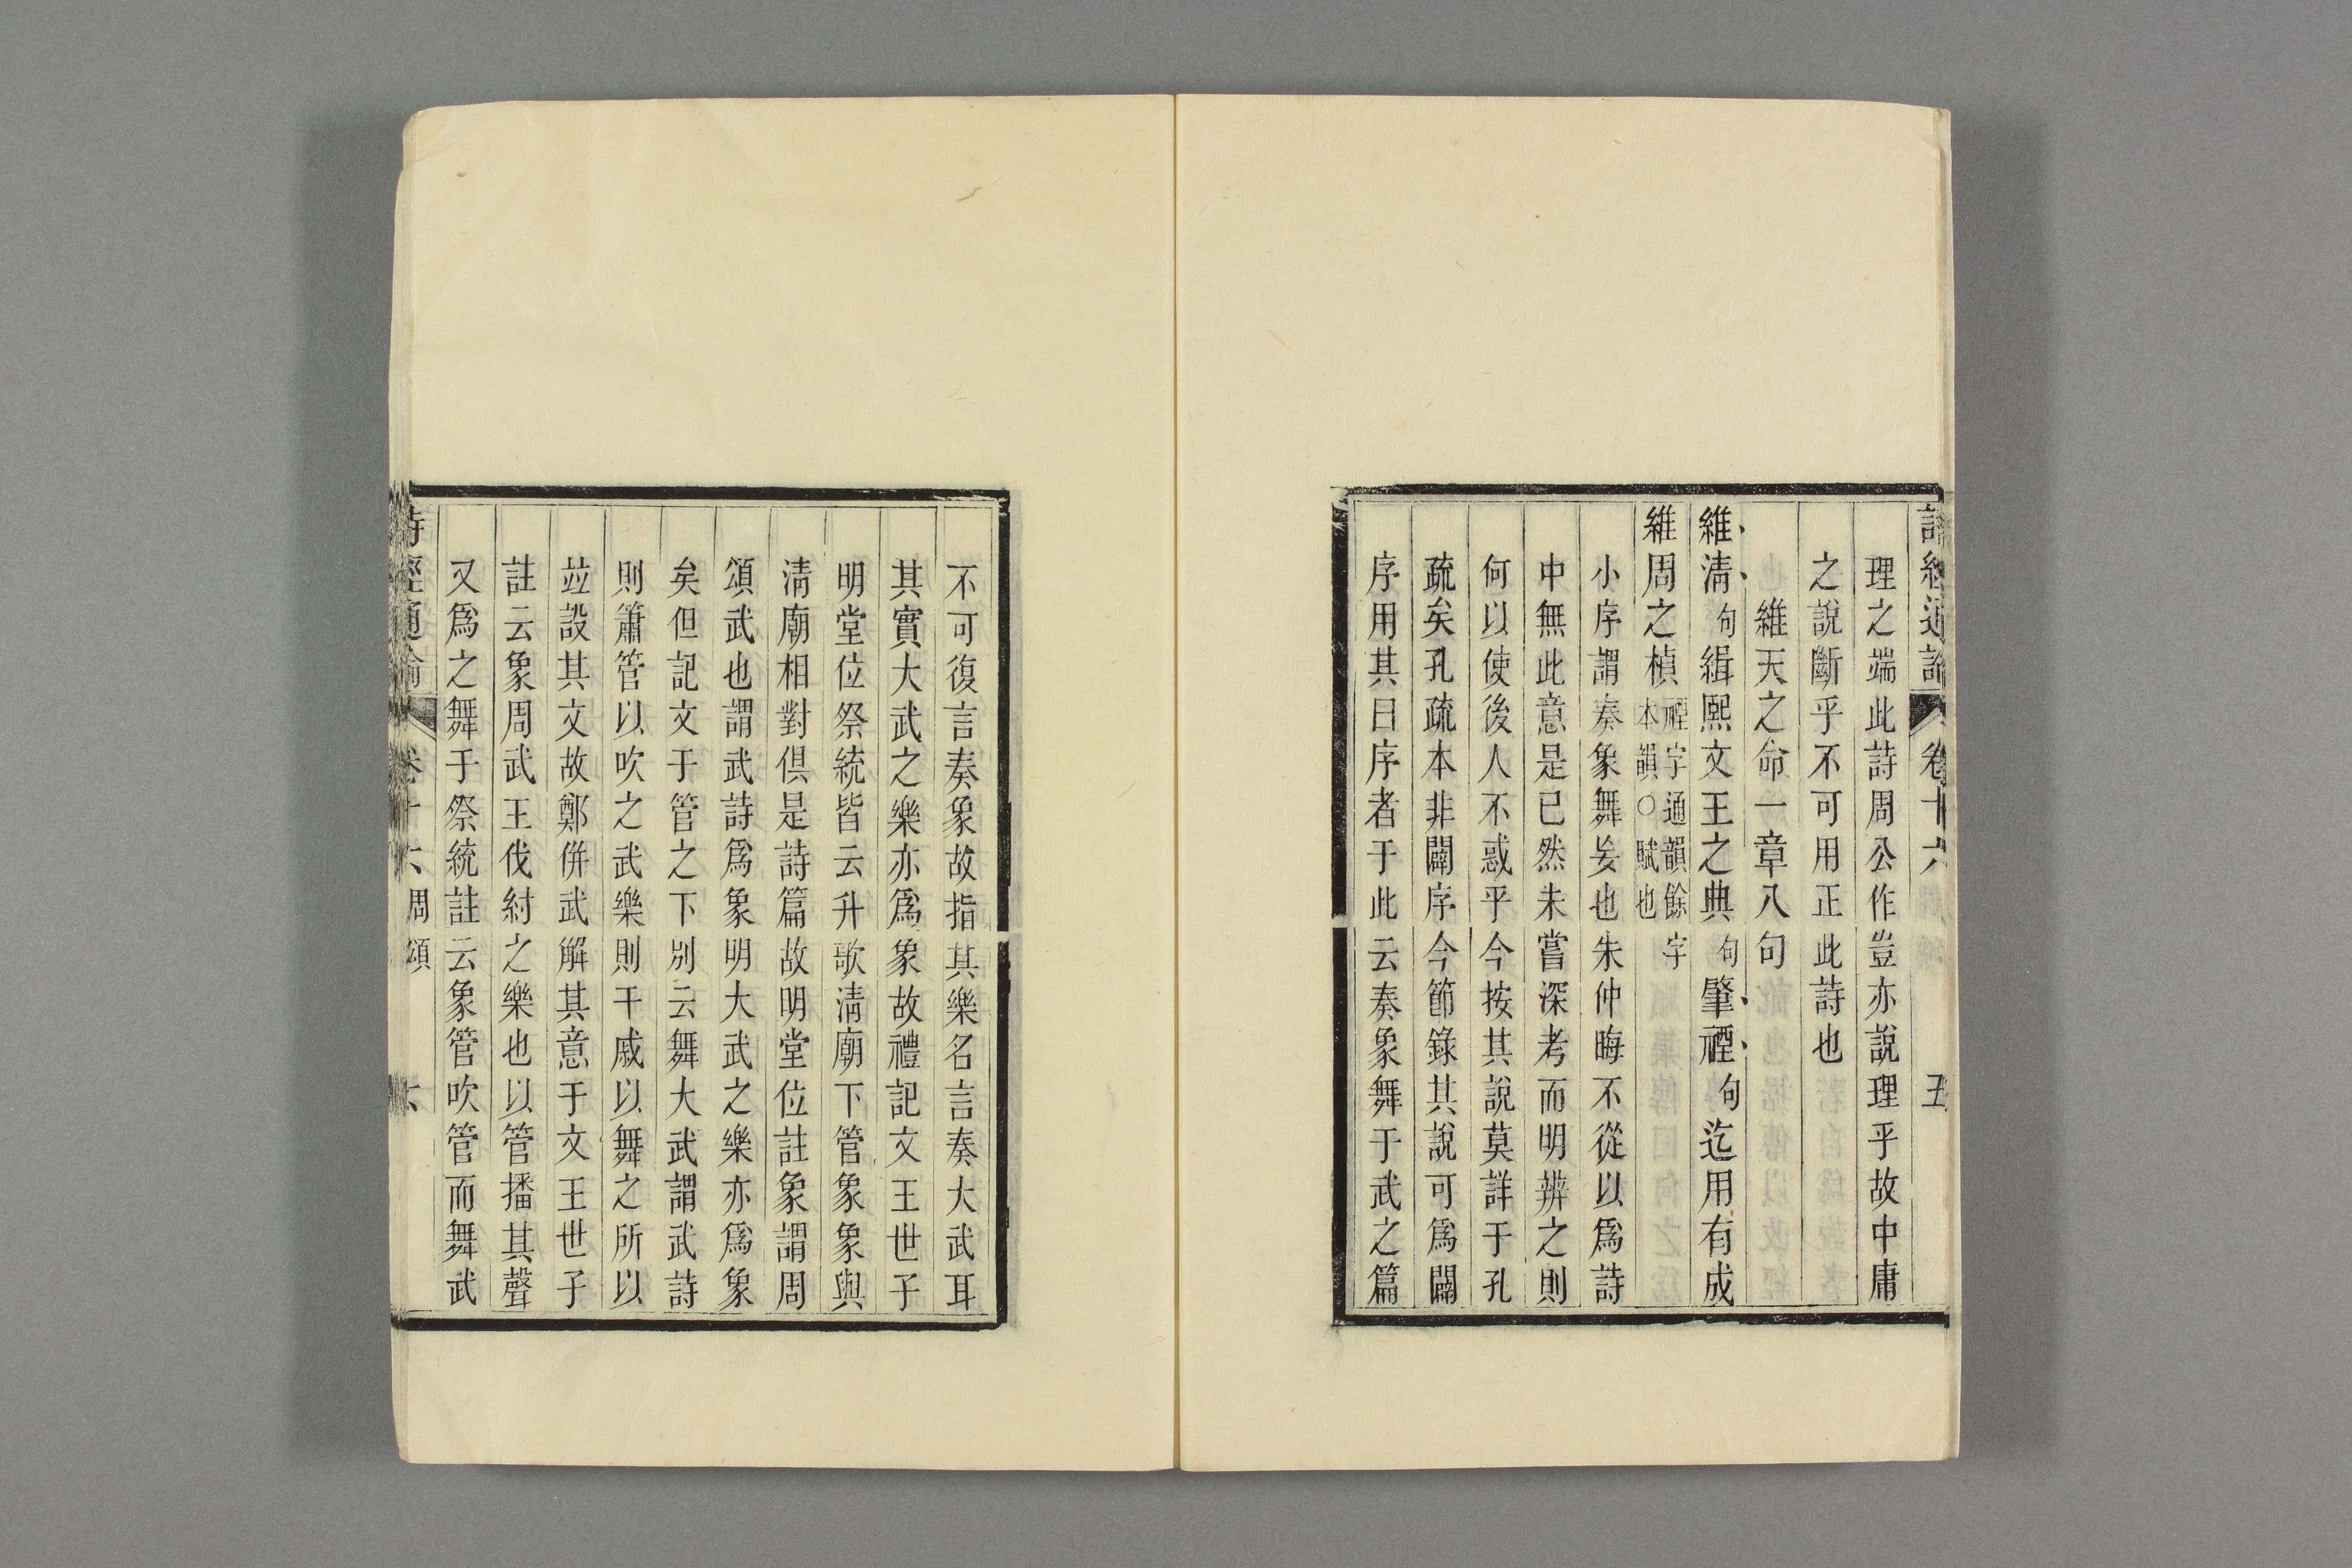 詩經通論 卷十六 五
理之端此詩周公作豈亦說理乎故中庸
之說斷乎不可用正此詩也
維天之命一章八句
維清句緝熙文王之典句肇禋句迄用有成
維周之楨禋字通韻餘字本韻○賦也
小序謂奏象舞妄也朱仲晦不從以爲詩
中無此意是已然未嘗深考而明辨之則
何以使後人不惑乎今按其說莫詳于孔
疏矣孔疏本非闢序今節錄其說可爲闢
序用其曰序者于此云奏象舞于武之篇
不可復言奏象故指其樂名言奏大武耳
其實大武之樂亦爲象故禮記文王世子
明堂位祭統皆云升歌清廟下管象象與
清廟相對俱是詩篇故明堂位註象謂周
頌武也謂武詩爲象明大武之樂亦爲象
矣但記文于管之下別云舞大武謂武詩
則簫管以吹之武樂則干戚以舞之所以
竝設其文故鄭併武解其意于文王世子
註云象周武王伐紂之樂也以管播其聲
又爲之舞于祭統註云象管吹管而舞武
詩經通論 卷十六 周頌 六